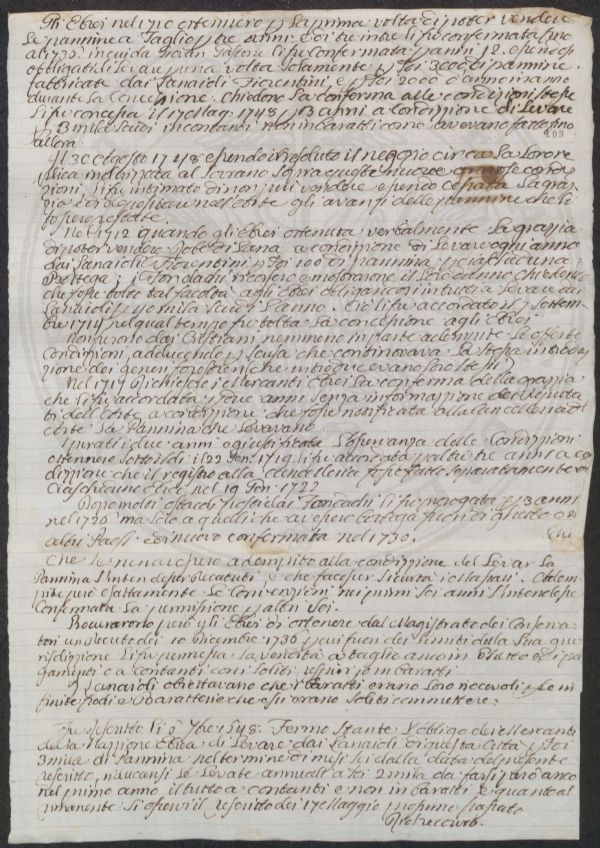 Gli Ebrei nel 1710 ottennero p la prima volta di poter vendere
le pannine a Taglio p tre anni e di tre in tre li fu confermata fino
al 1730. p anni 12. e furono
obbligati di levare una volta solamente p 3000 di pannine
fabbricate dai Lanaioli Fiorentini, e p 2000 d'anno in anno
durante la Concessione. Chiedono la conferma alle condizioni stesse
li fu concessa il 17 Mag. 1748 p 3 anni a condizione di Levare
p 3 mila Scudi in contanti e non in baratti come avevano fatto fino
109
allora
Il 30 Agosto 1748 essendo irresoluto il negozio circa la
al Sovrano sopra queste nuove
zioni, li fu intimato di non più vendere essendo Cessata la graz
zia e di depositare nell'Arte gli avanzi delle pannine che li
fossero restate.
Nel 1712 quando gli Ebrei ottennero verbalmente la grazzia
di poter vendere robe di Lana a condizione di Levare ogni anno
dai Lanaioli Fiorentini p 100 di pannina p ciascuna
Bottega; i Fondachi e mostrarono il Loro danno chiedendo
che fosse tolta tal facoltà agli Ebrei obligandosi in tutti a Levare dai
Lanaioli p 40 mila Scudi L'anno. Ciò li fu accordato il 7 Settem-
bre 1714 nel qual tempo fu tolta la concessione agli Ebrei
Non furono dai Cristiani nemmeno in parte adempite le offerte
Condizioni, adducendo p scusa che continovava la stessa introdu
zione dei generi forestieri che introducevano
Nel 1717 Richiedono i Mercanti Ebrei la conferma della grazzia
che li fu accordata p due anni senza informazione dei Deputa
ti dell'Arte a condizione che fosse notificata alla Cancelleria dell'
Arte la Pannina che Levavano
Spirati i due anni e giustificata l'osservanza delle Condizioni
ottennero sotto il dì 22 Gen. 1719 li fu accordata p altri tre anni a co
dizione che il registro alla Cancelleria fosse fatto separatamente di
Ciascheduno nel 19 Gen. 1722
Dopo molti ostacoli dai Fondachi li fu prorogata p 3 anni
nel 1726 ma solo a quelli che avessero bottega fuori di questo o di
altri Paesi. e di nuovo confermata nel 1730.
Che
Che se non avessero adempito alla condizione del Levar la
Pannina s'intendessero decaduti, e che facesser Sicurtà
pite però esattamente le Convenzioni nei primi sei anni s'intendesse
Confermata la permissione p altri sei.
Procurarono però gli Ebrei di ottenere dal Magistrato dei Conserva-
tori un Decreto dei 10 Dicembre 1736 p cui fuori dei limiti della sua giu-
risdizione li fu permessa la vendita a taglio ancora in Ghetto ed i pa
gamenti e a contanti con i soliti respiri o in baratti
I Lanaioli obiettavano che i baratti erano loro nocevoli p le in
finite frodi e baratterie che essi erano soliti commettere.
Rescritto li 2 7bre 1748. Fermo stante L'obbligo dei Mercanti
della Nazione Ebrea di Levare dai Lanaioli di questa Città p
3 mila di Pannina nel termine di mesi sei dalla data del presente
rescritto, riducansi le Levate annuali a 2 mila da farsi però anco
nel primo anno, il tutto a contanti e non in baratti e quanto al
rimanente si osservi il rescritto dei 17 Maggio prossimo passato
Richecourt.